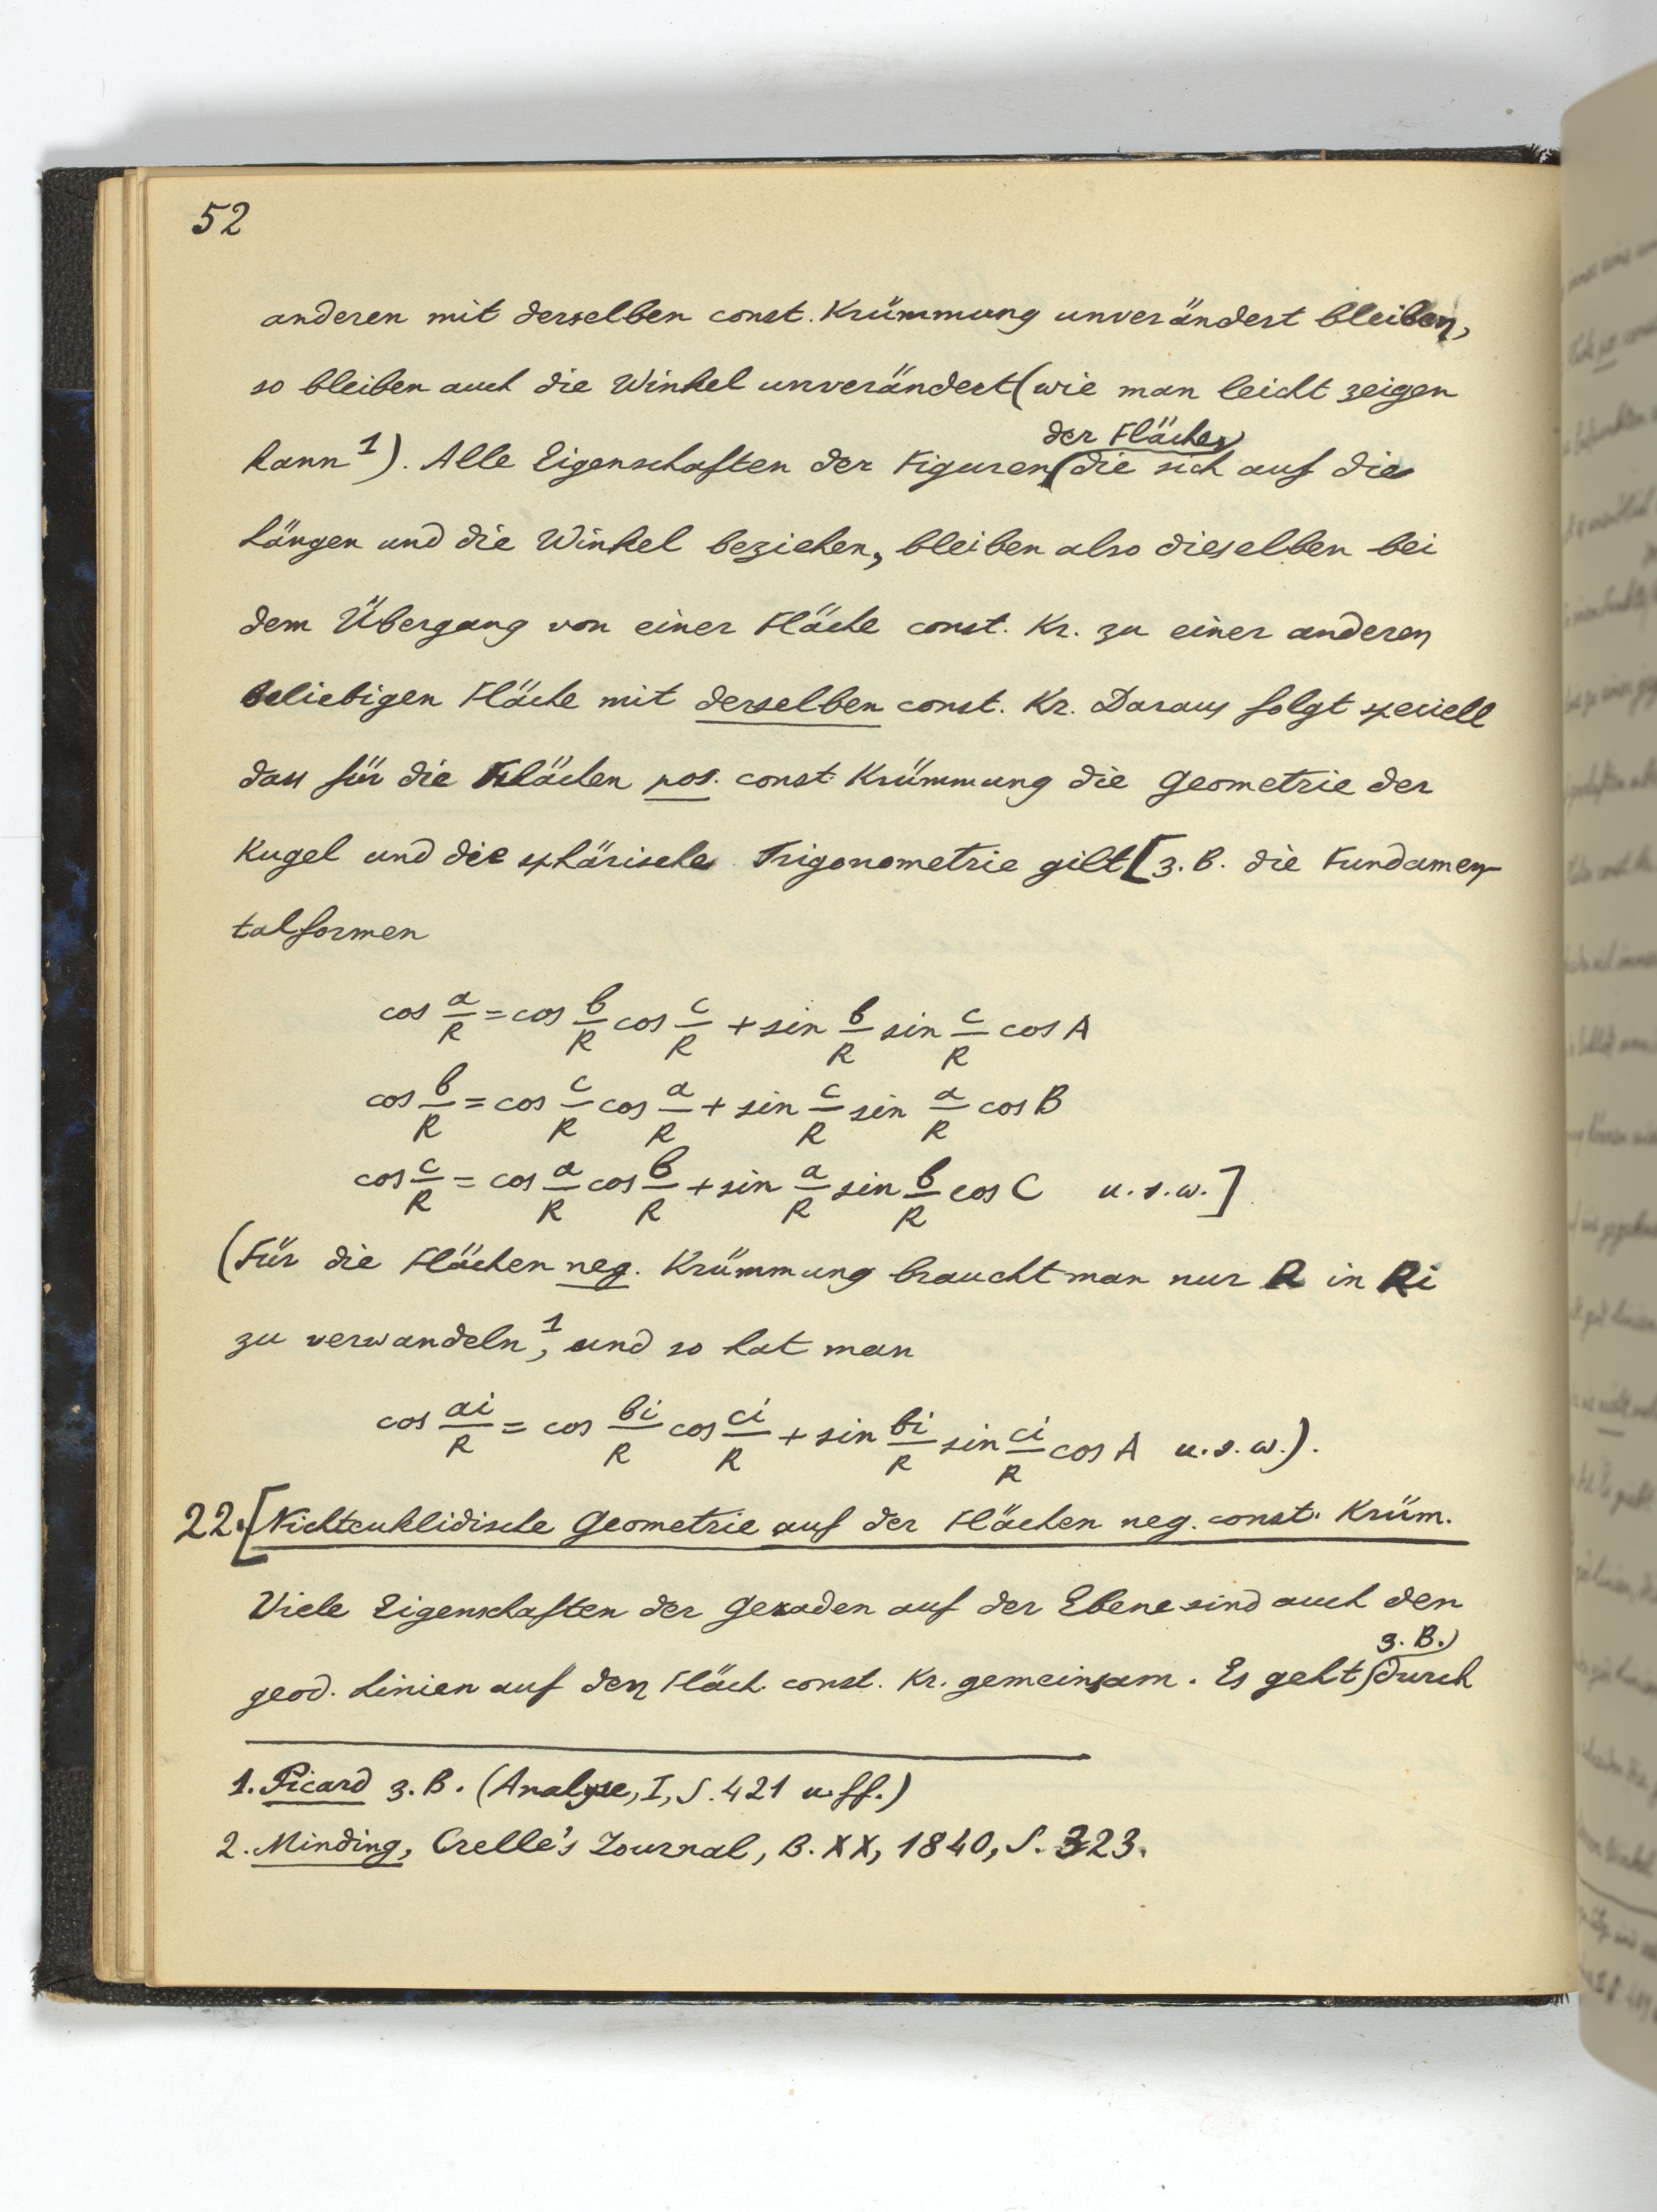 52
anderen mit derselben const. Krümmung unverändert bleiben,
so bleiben auch die Winkel unverändert (wie man leicht zeigen
kann 1). Alle Eigenschaften der Figuren der Flächen, die sich auf die
Längen und die Winkel beziehen, bleiben also dieselben bei
dem Übergang von einer Fläche const. Kr. zu einer anderen
beliebigen Fläche mit derselben const. Kr. Daraus folgt speciell
dass für die Flächen pos. const. Krümmung die Geometrie der
Kugel und die sphärische Trigonometrie gilt [z. B. die Fundamen-
talformen
cos a/R = cos b/R cos c/R + sin b/R sin c/R cos A
cos b/R = cos c/R cos a/R + sin c/R sin a/R cos B
cos c/R = cos a/R cos b/R + sin a/R sin b/R cos C u. s. w.]
(Für die Flächen neg. Krümmung braucht man nur R in Ri
zu verwandeln 1, und so hat man
cos ai/R = cos bi/R cos ci/R + sin bi/R sin ci/R cos A u. s. w.).
22. [Nichteuklidische Geometrie auf der Flächen neg. const. Krüm.
Viele Eigenschaften der Geraden auf der Ebene sind auch den
geod. Linien auf den Fläch. const. Kr. gemeinsam. Es geht z. B. durch
1. Picard z. B. (Analyse, I, S. 421 u. ff.)
2. Minding, Crelle's Journal, B. XX, 1840, S. 323.